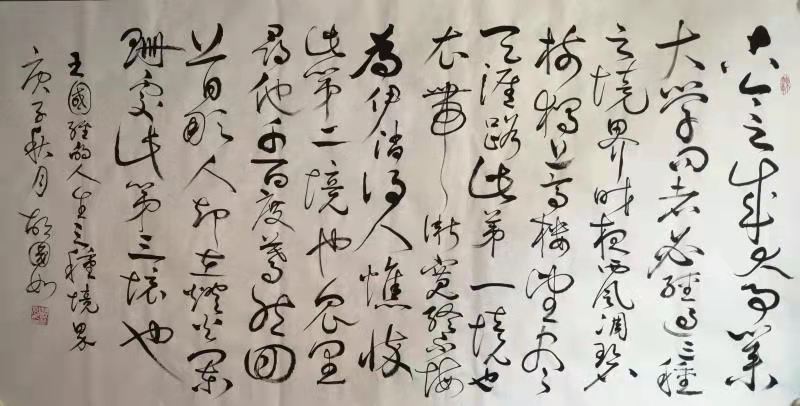 古今之成大事業
大学问者必經過三種
之境界昨夜西風凋碧
樹獨上高樓望尽
天涯路此第一境也
衣帶漸寬終不悔
為伊消得人憔悴
此第二境也眾里
尋他千百度蓦然回
首那人却在燈火闌
珊處此第三境也
王國維的人生三種境界
庚子秋月 胡國如